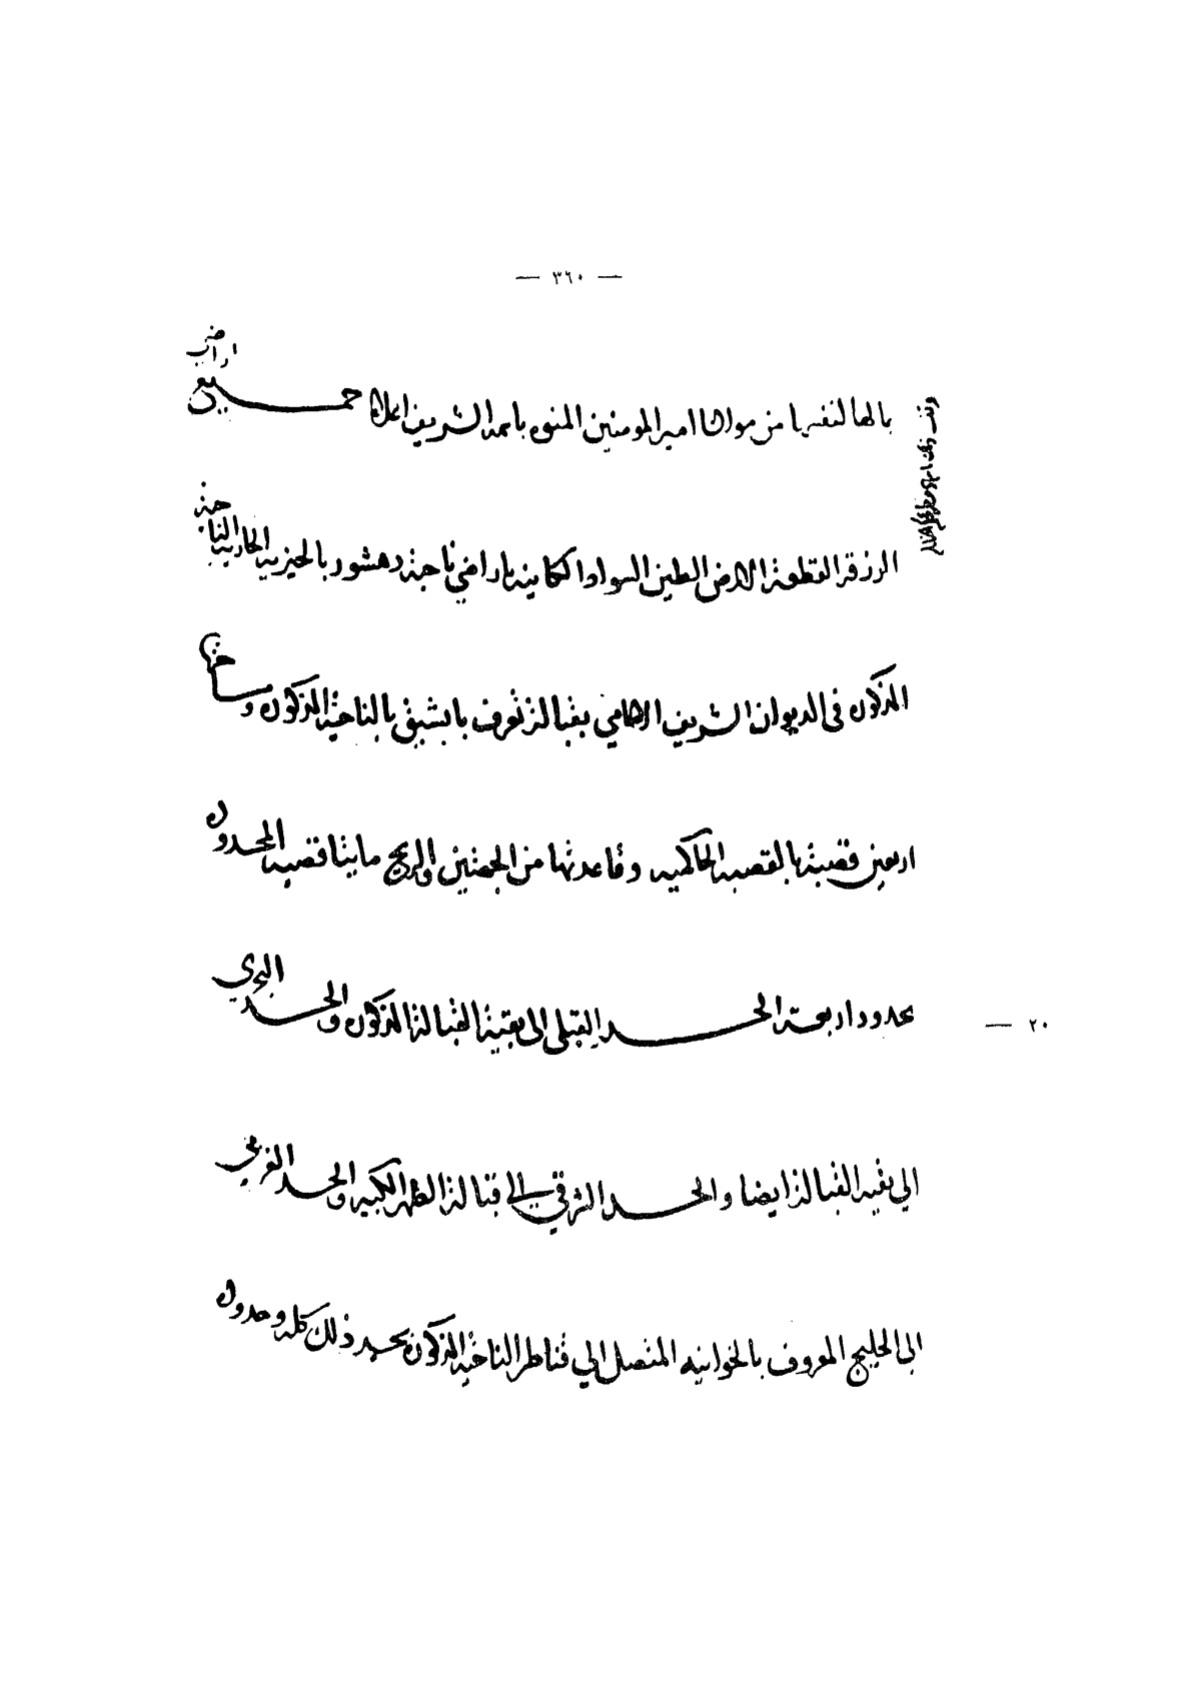 — ٣٦٠ —
بمالها لنفسها من مولانا امير المومنين المنوه باسمه الشريف اعلاه جميع اراضى
الرزقة القطعة الارض الطين السواد الكاينة باراضي ناحية دهشور بالجيزية الجارية الناحية
المذكورة فى الديوان الشريف بقبالة تعرف بالناحية المذكورة ومساحتها
اربعين قصبة بالقصبة الحاكمية وقاعدتها من الجهتين والريح مايتا قصبة المحدودة
بحدود اربعة الحد القبلى الى بقية القبالة المذكورة والحد البحري
٢٠ —
الي بقية القبالة ايضا والحد الشرقي الى قبالة الظهر الكبيرة والحد الغربي
الى الخليج المعروف المتصل الي قناطر الناحية المذكورة بحد ذلك كله وحدوده